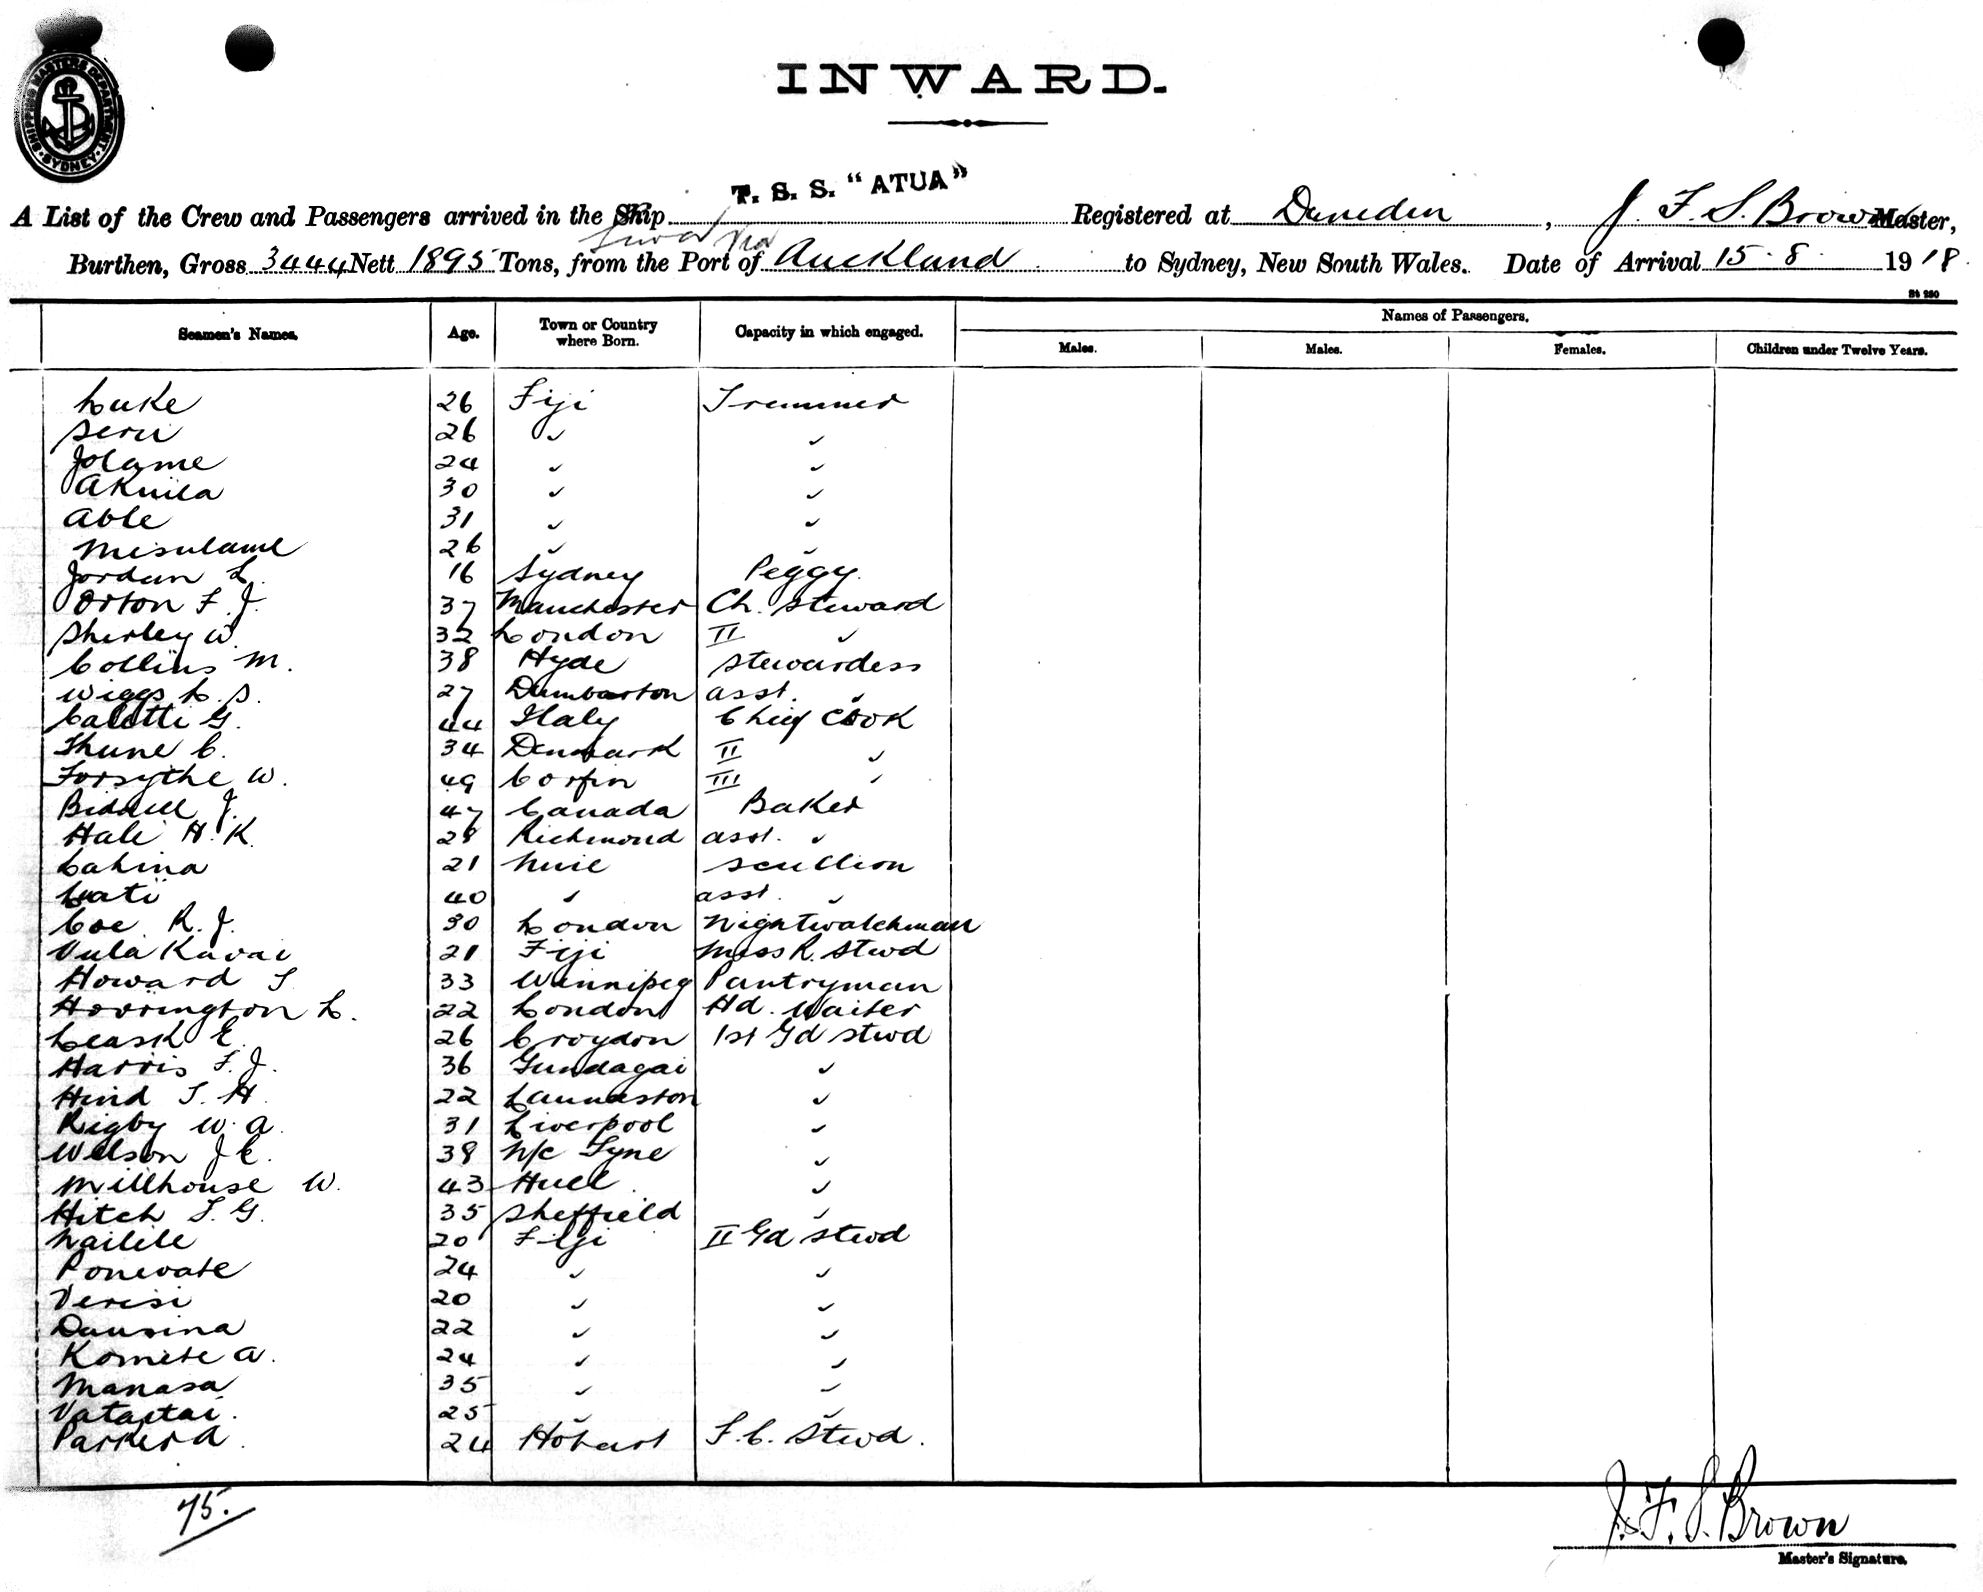 SHIPPING MASTERS DEPARTMENT
SYDNEY
INWARD.
T. S. S. "ATUA"
A List of the Crew and Passengers arrived in the Ship Registered at Dunedin, J. F. S. Brown Master,
Suva via
Burthen, Gross 3444 Nett 1895 Tons, from the Port of Auckland to Sydney, New South Wales. Date of Arrival 15.8. 1918.
St 280
Seamen's Names. Age. Town or Country where Born. Capacity in which engaged. Names of Passengers.
Males. Males. Females. Children under Twelve Years.
Luke 26 Fiji Trimmer
Seru 26 " "
Jolame 24 " "
Akuila 30 " "
Able 31 " "
Misulame 26 " "
Jordan L. 16 Sydney Peggy
Orton F. J. 37 Manchester Ch. Steward
Shirley W. 32 London II "
Collins M. 38 Hyde Stewardess
Wiggs L. S. 27 Dumbarton asst. "
Caletti G. 44 Italy Chief Cook
Thune C. 34 Denmark II "
Forsythe W. 49 III "
J. 47 Canada Baker
Hale H. K. 28 Richmond asst. "
Cahina 21 Niue Scullion
Lati 40 " asst. "
Coe R. J. 30 London Nightwatchman
Vula Kavai 21 Fiji Mess R. Stwd
Howard T. 33 Winnipeg Pantryman
Horrington L. 22 London Hd. Waiter
Leask E. 26 Croydon 1st Gd Stwd
Harris F. J. 36 Gundagai "
Hind T. H. 22 Launceston "
Rigby W. A. 31 Liverpool "
Wilson J E. 38 N/c Tyne "
Millhouse W. 43 Hull "
Hitch T. G. 35 Sheffield "
Nailele 20 Fiji II Gd Stwd
Ponevate 24 " "
Verisi 20 " "
Dausina 22 " "
Komete A. 24 " "
Manasa 35 " "
Vataitai. 25 " "
Parker A. 24 Hobart F. C. Stwd.
75.
J. F. S. Brown
Master's Signature.